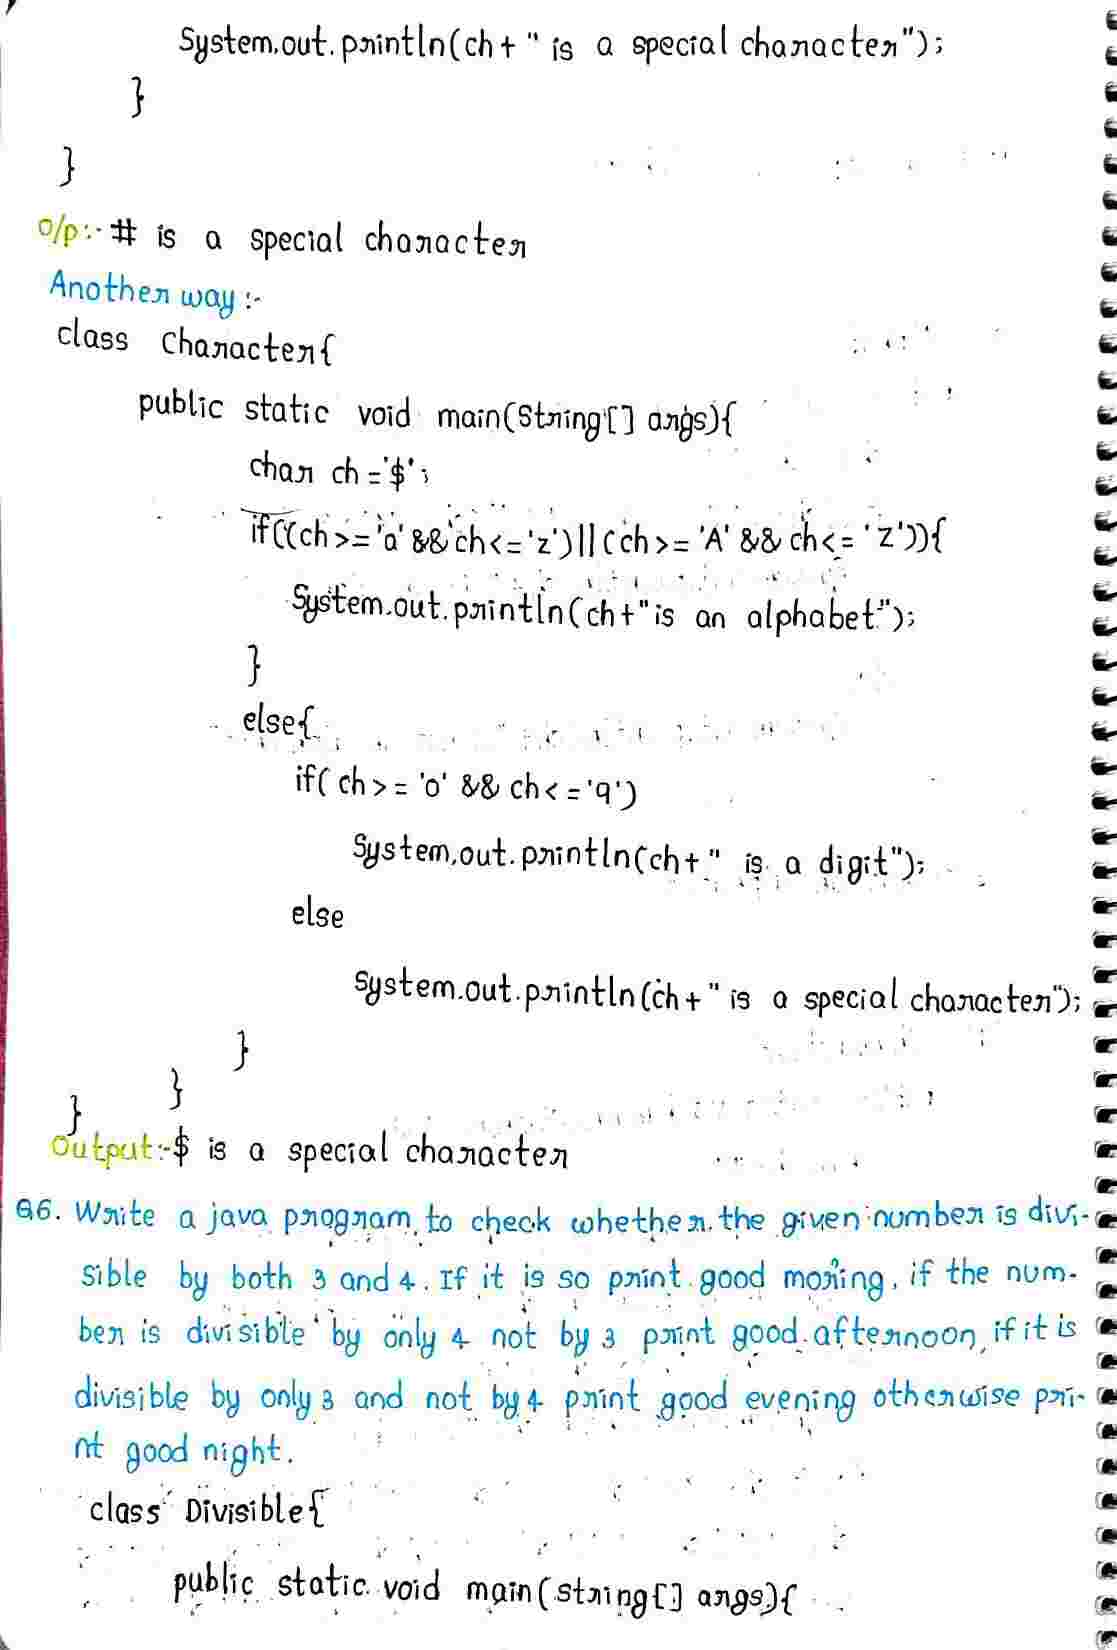 System.out.println(ch+" is a special character");
}
}
O/p:- # is a special character
Another way:-
class Character{
public static void main(String[] args){
char ch ='$';
if((ch>='a' && ch<='z')||(ch>= 'A' && ch<= 'Z')){
System.out.println(ch+"is an alphabet");
}
else{
if( ch>= '0' && ch<='9')
System.out.println(ch+" is a digit");
else
System.out.println(ch+" is a special character");
}
}
}
Output:-$ is a special character
Q6. Write a java program to check whether the given number is divi-
sible by both 3 and 4. If it is so print good morning, if the num-
ber is divisible by only 4 not by 3 print good afternoon, if it is
divisible by only 3 and not by 4 print good evening otherwise pri-
nt good night.
class Divisible{
public static void main(String[] args){